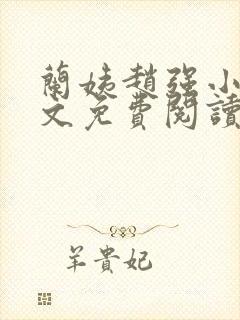 蘭姨趙强小
文免費閱讀
羊貴妃